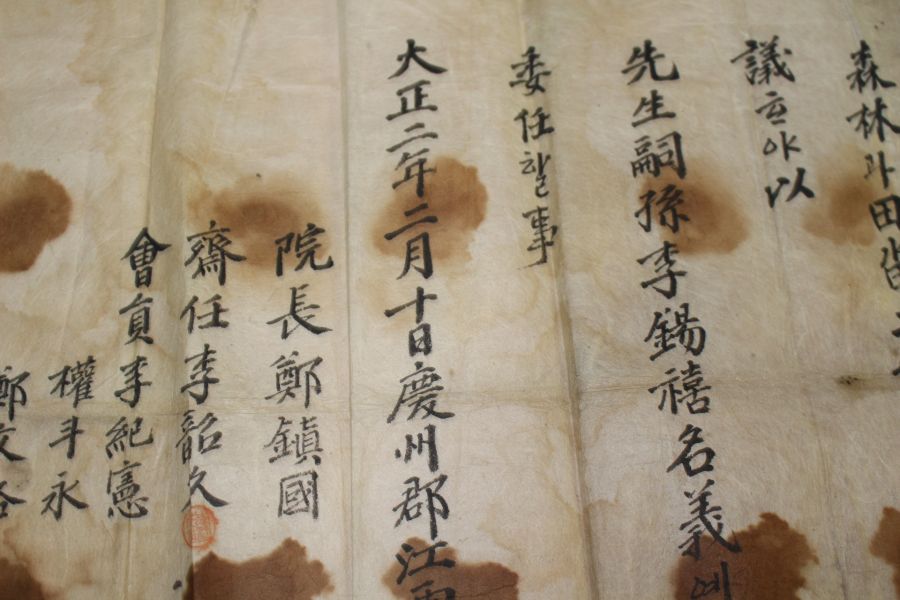 森林斗田畓
議すや以
先生嗣孫李錫禧名義에
委任할事
大正二年二月十日慶州郡江西
院長鄭鎭國
齋任李韶久
會員李紀憲
權斗永
鄭文